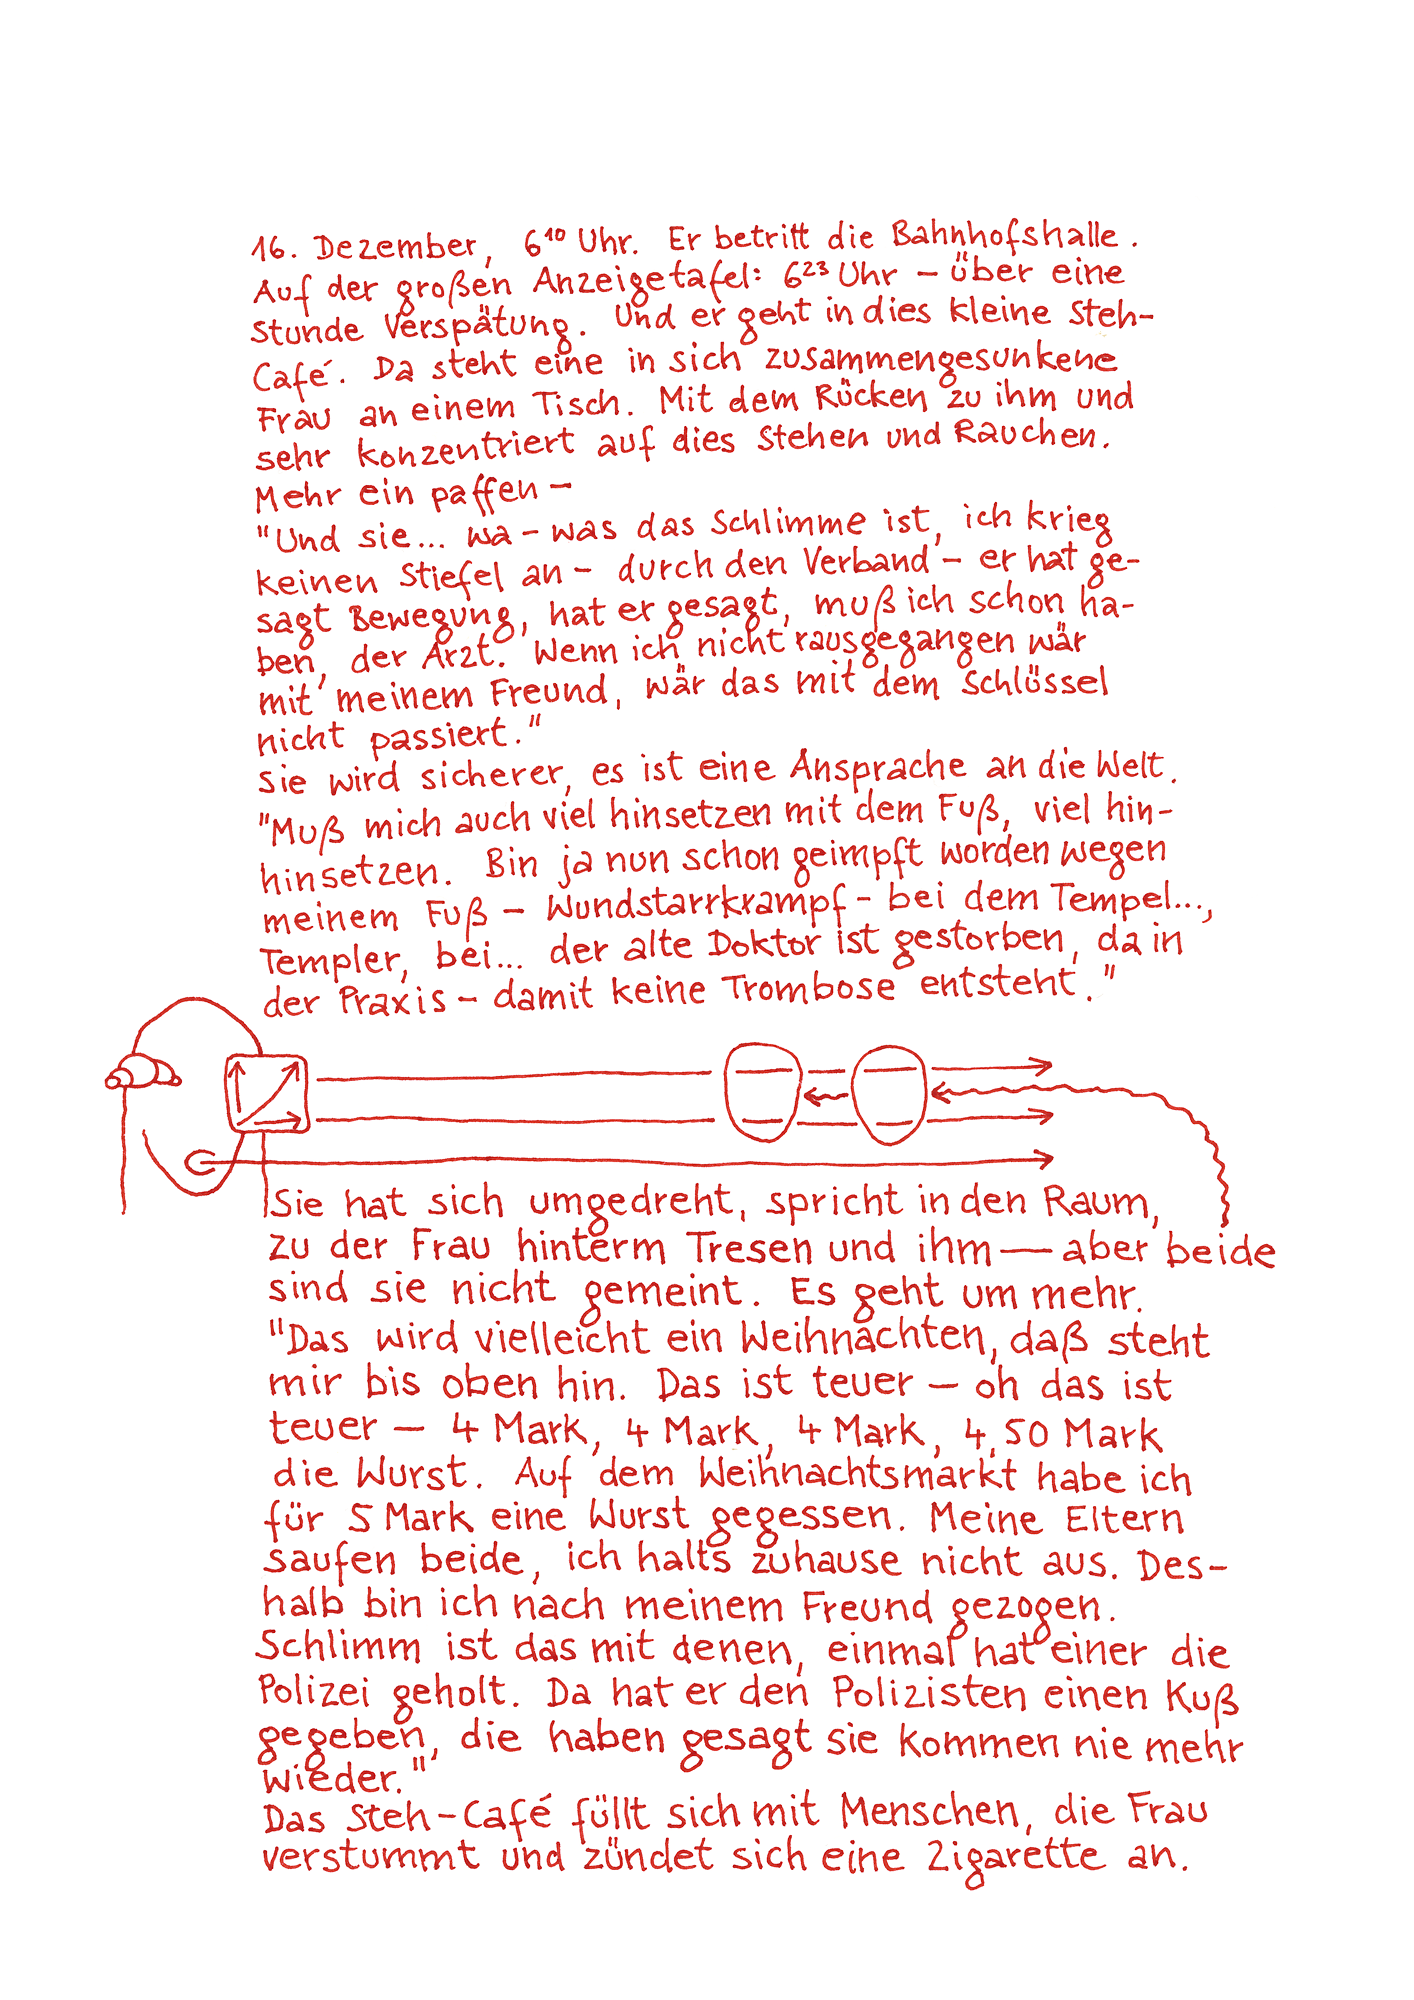 16. Dezember, 6¹⁰ Uhr. Er betritt die Bahnhofshalle.
Auf der großen Anzeigetafel: 6²³ Uhr – über eine
Stunde Verspätung. Und er geht in dies kleine Steh-
Café. Da steht eine in sich zusammengesunkene
Frau an einem Tisch. Mit dem Rücken zu ihm und
sehr konzentriert auf dies Stehen und Rauchen.
Mehr ein paffen –
"Und sie... wa – was das Schlimme ist, ich krieg
keinen Stiefel an – durch den Verband – er hat ge-
sagt Bewegung, hat er gesagt, muß ich schon ha-
ben, der Arzt. Wenn ich nicht rausgegangen wär
mit meinem Freund, wär das mit dem Schlüssel
nicht passiert."
Sie wird sicherer, es ist eine Ansprache an die Welt.
"Muß mich auch viel hinsetzen mit dem Fuß, viel hin-
hinsetzen. Bin ja nun schon geimpft worden wegen
meinem Fuß – Wundstarrkrampf – bei dem Tempel...,
Templer, bei... der alte Doktor ist gestorben, da in
der Praxis – damit keine Trombose entsteht."
Sie hat sich umgedreht, spricht in den Raum,
zu der Frau hinterm Tresen und ihm — aber beide
sind sie nicht gemeint. Es geht um mehr.
"Das wird vielleicht ein Weihnachten, daß steht
mir bis oben hin. Das ist teuer – oh das ist
teuer – 4 Mark, 4 Mark, 4 Mark, 4,50 Mark
die Wurst. Auf dem Weihnachtsmarkt habe ich
für 5 Mark eine Wurst gegessen. Meine Eltern
saufen beide, ich halts zuhause nicht aus. Des-
halb bin ich nach meinem Freund gezogen.
Schlimm ist das mit denen, einmal hat einer die
Polizei geholt. Da hat er den Polizisten einen Kuß
gegeben, die haben gesagt sie kommen nie mehr
wieder."
Das Steh-Café füllt sich mit Menschen, die Frau
verstummt und zündet sich eine Zigarette an.